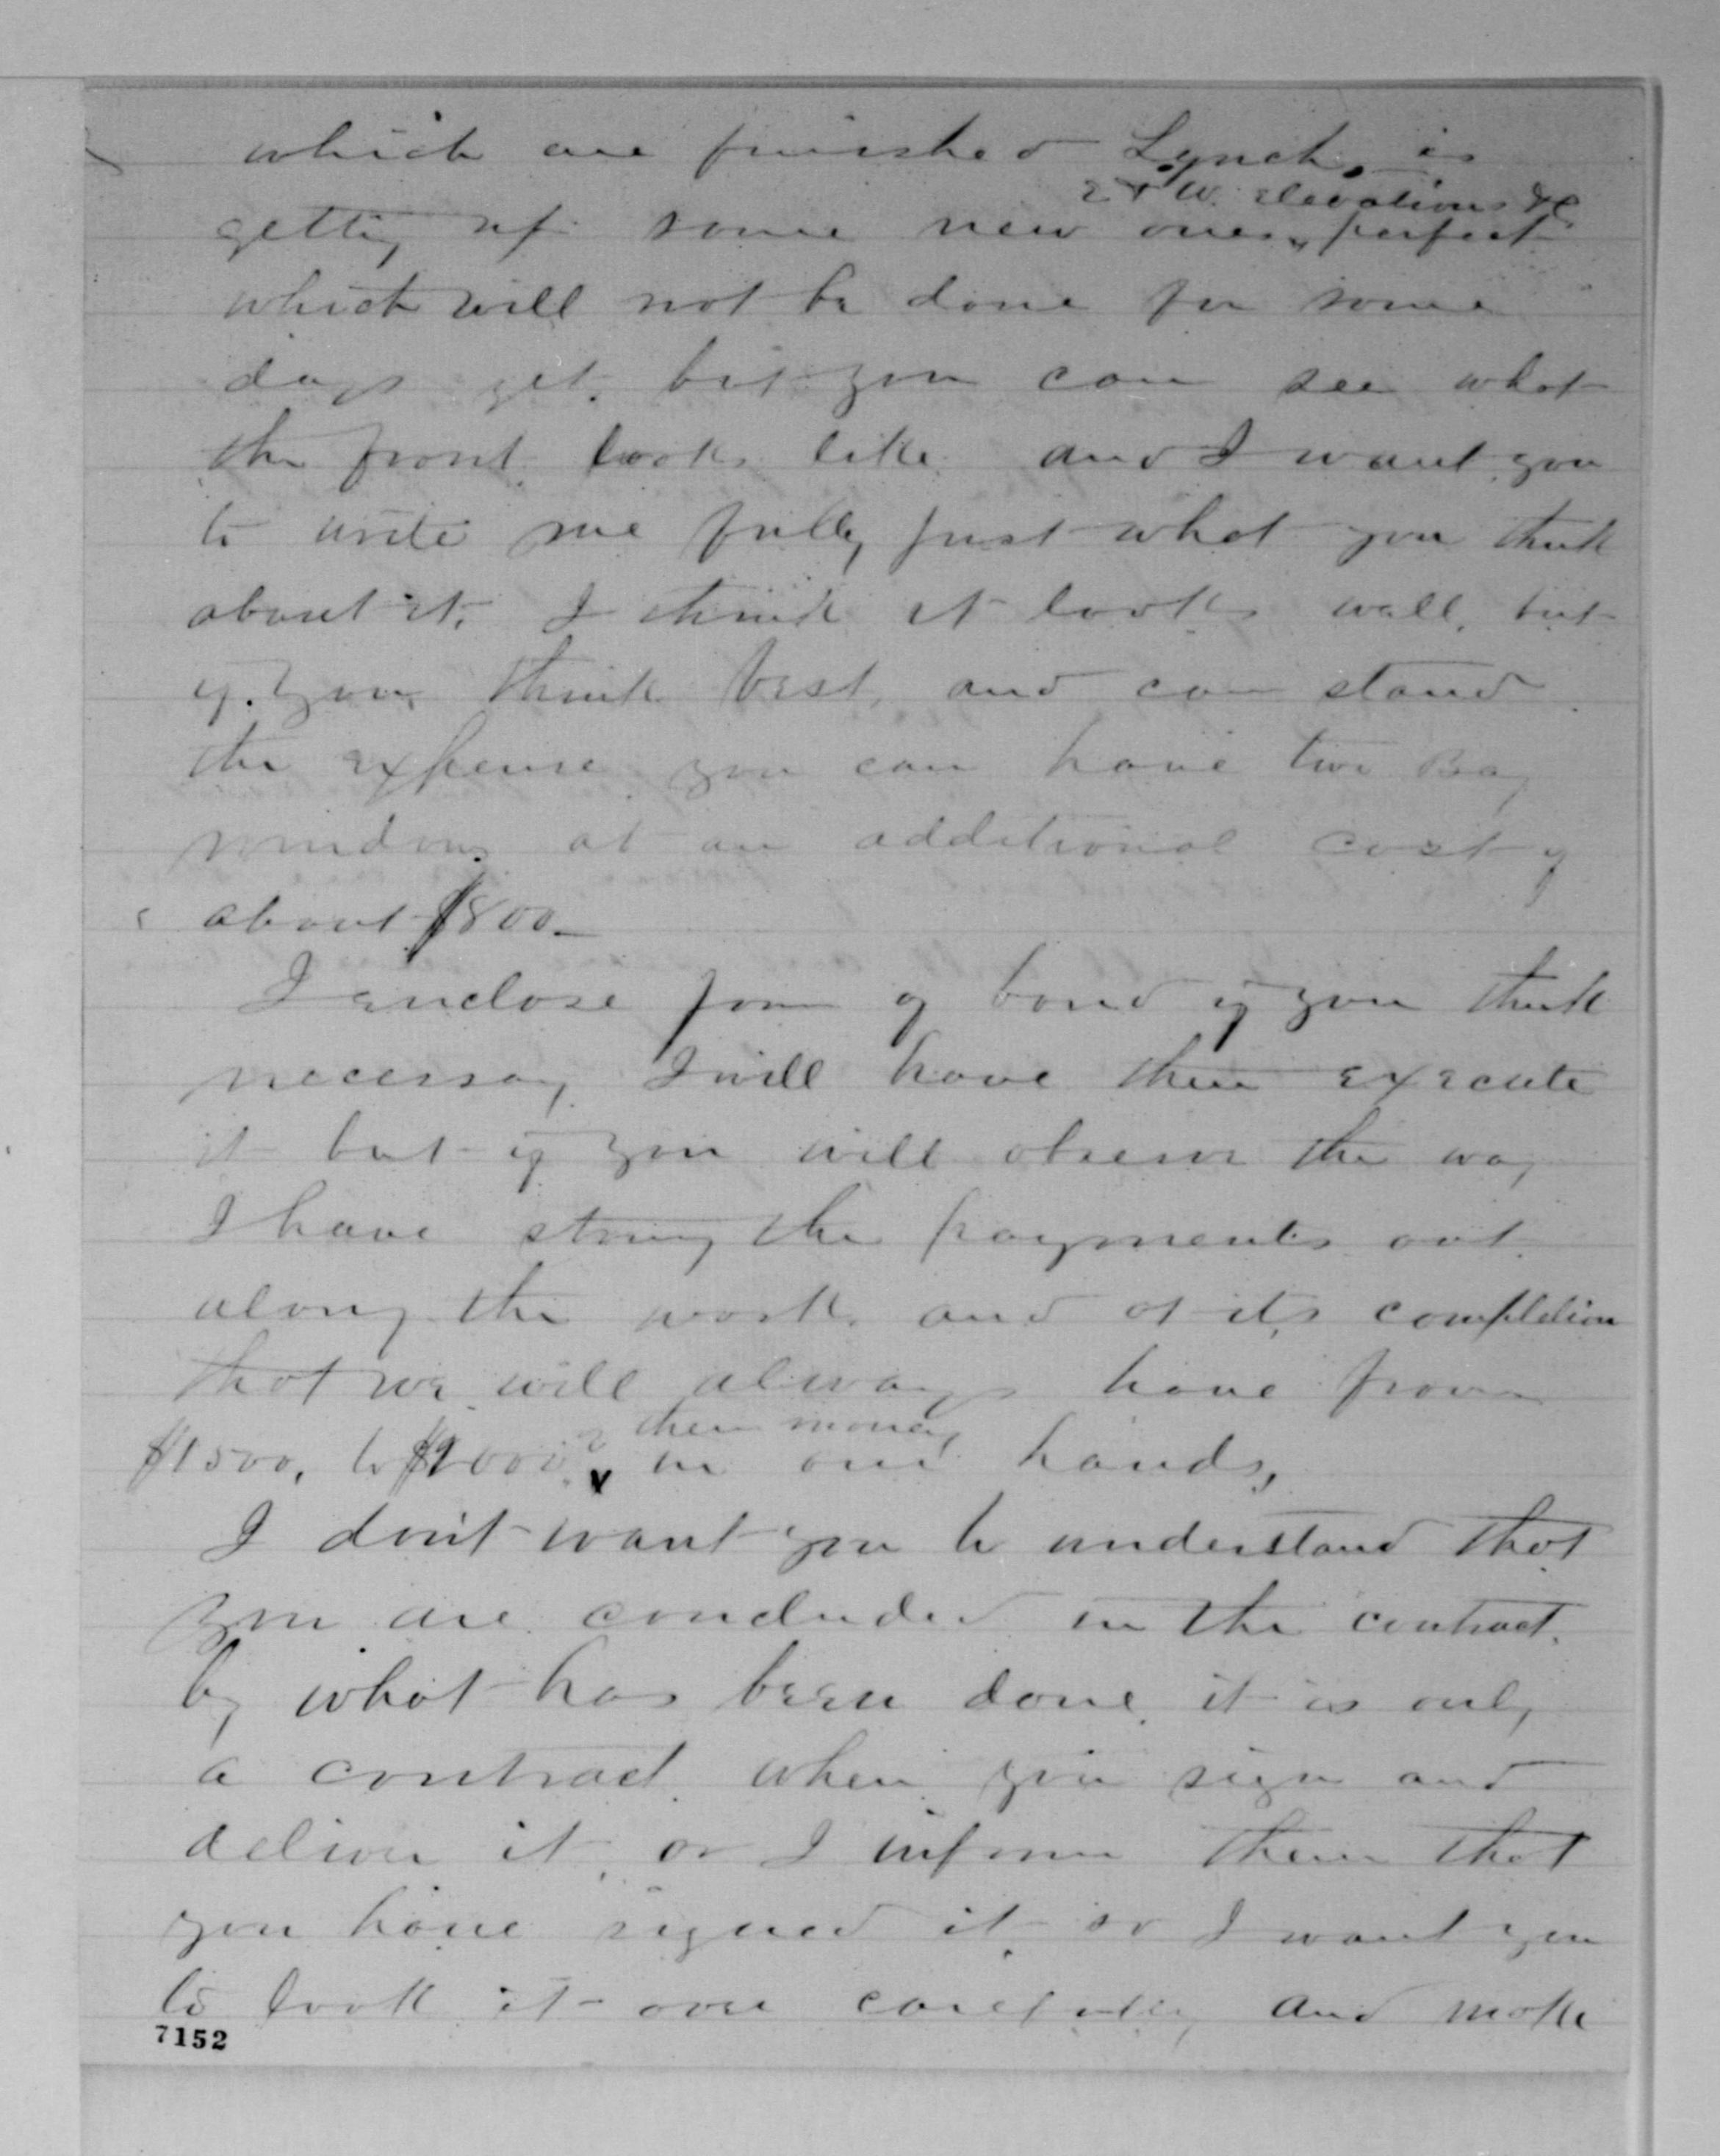 which are finished Lynch, is
E & W. elevations &c
getting up some new ones, perfect
which will not be done for some
days yet. but you can see what
the front looks like and I want you
to write me fully just what you think
about it. I think it looks well, but
if you think best, and can stand
the expense you can have two Bay
windows at an additional cost of
about $800-
I enclose form of bond if you think
necessary I will have them execute
it but if you will observe the way
I have strung the payments out
along the work and at its completion
that we will always have from
their money
$1500, to $2000 in our hands,
I don't want you to understand that
you are concluded in the contract.
by what has been done, it is only
a contract when you sign and
deliver it, or I inform them that
you have signed it, so I want you
to look it over carefully and make
7152